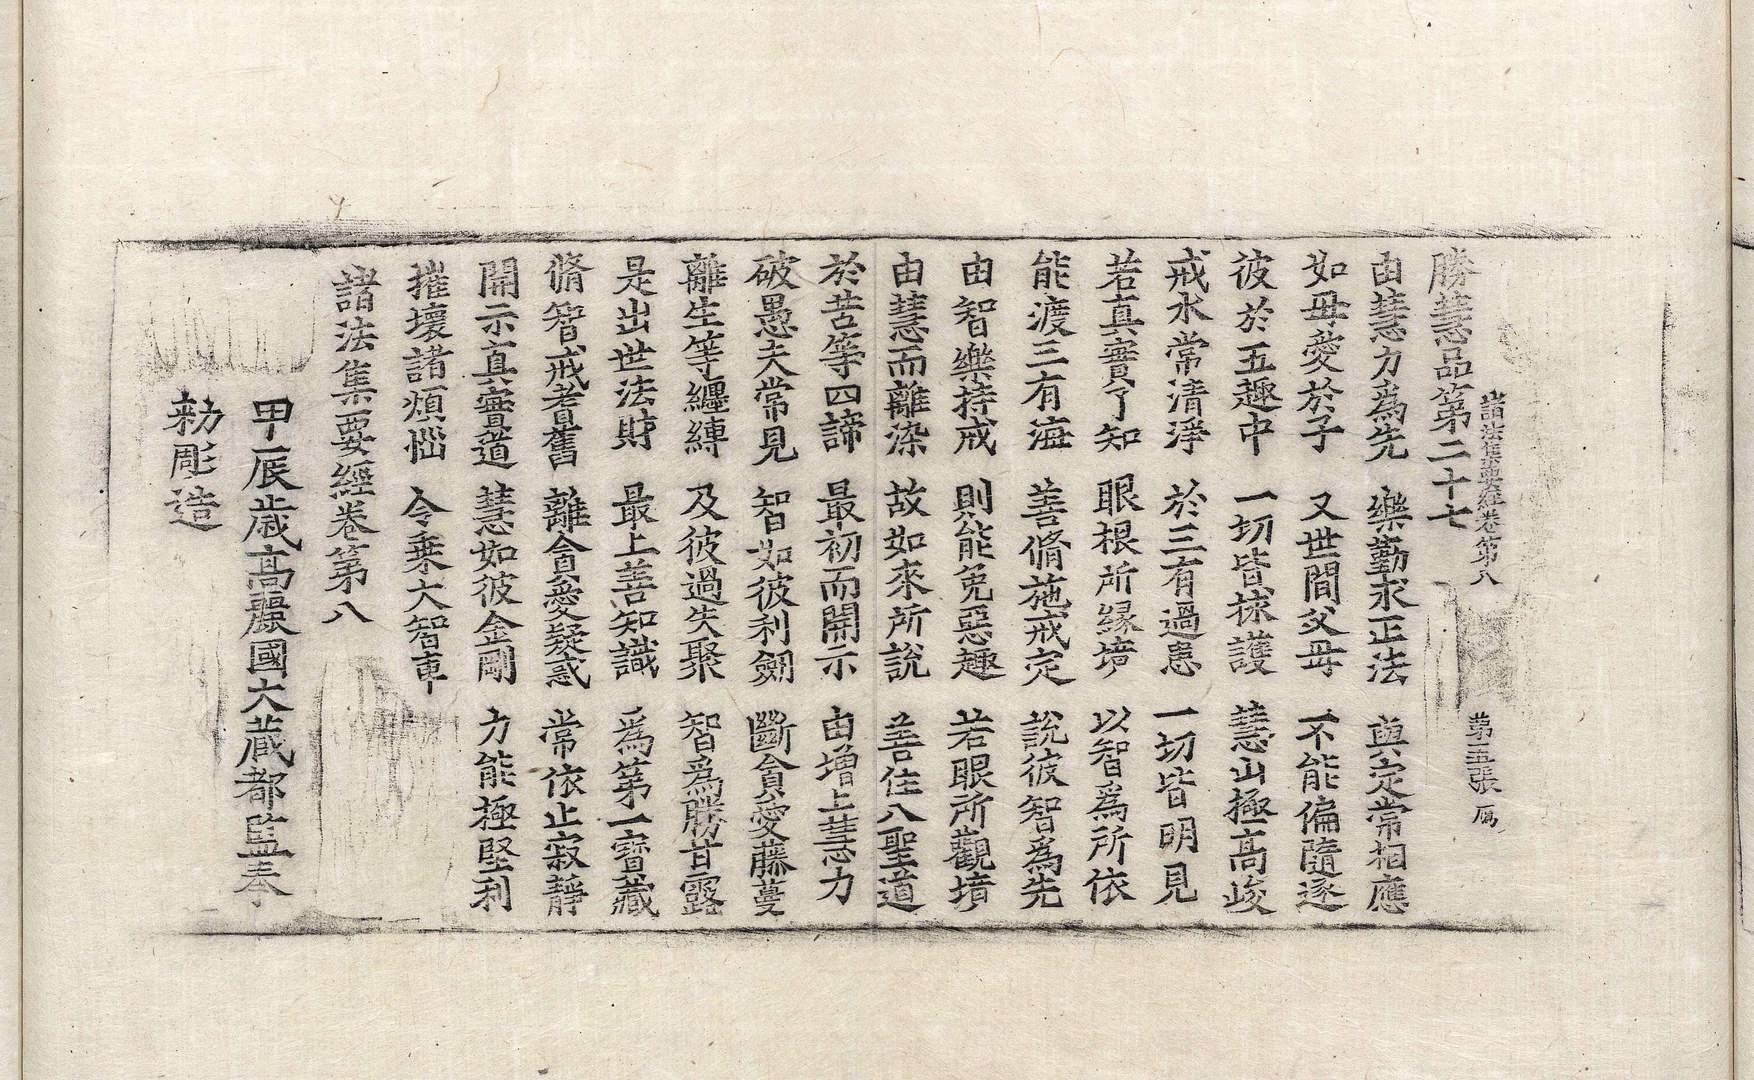 諸法集要經卷第八　第五張　鴈
勝慧品第二十七
由慧力爲先　樂勤求正法　與定常相應
如母愛於子　又世間父母　不能偏隨逐
彼於五趣中　一切皆救護　慧山極高峻
戒水常清淨　於三有過患　一切皆明見
若真實了知　眼根所緣境　以智爲所依
能渡三有海　善脩施戒定　說彼智爲先
由智樂持戒　則能免惡趣　若眼所觀境
由慧而離染　故如來所說　善住八聖道
於苦等四諦　最初而開示　由增上慧力
破愚夫常見　智如彼利劒　斷貪愛藤蔓
離生等纏縛　及彼過失聚　智爲勝甘露
是出世法財　最上善知識　爲第一寶藏
脩智戒耆舊　離貪愛疑惑　常依止寂靜
開示真實道　慧如彼金剛　力能極堅利
摧壞諸煩惱　令乗大智車
諸法集要經卷第八
甲辰歲高麗國大藏都監奉
勑彫造